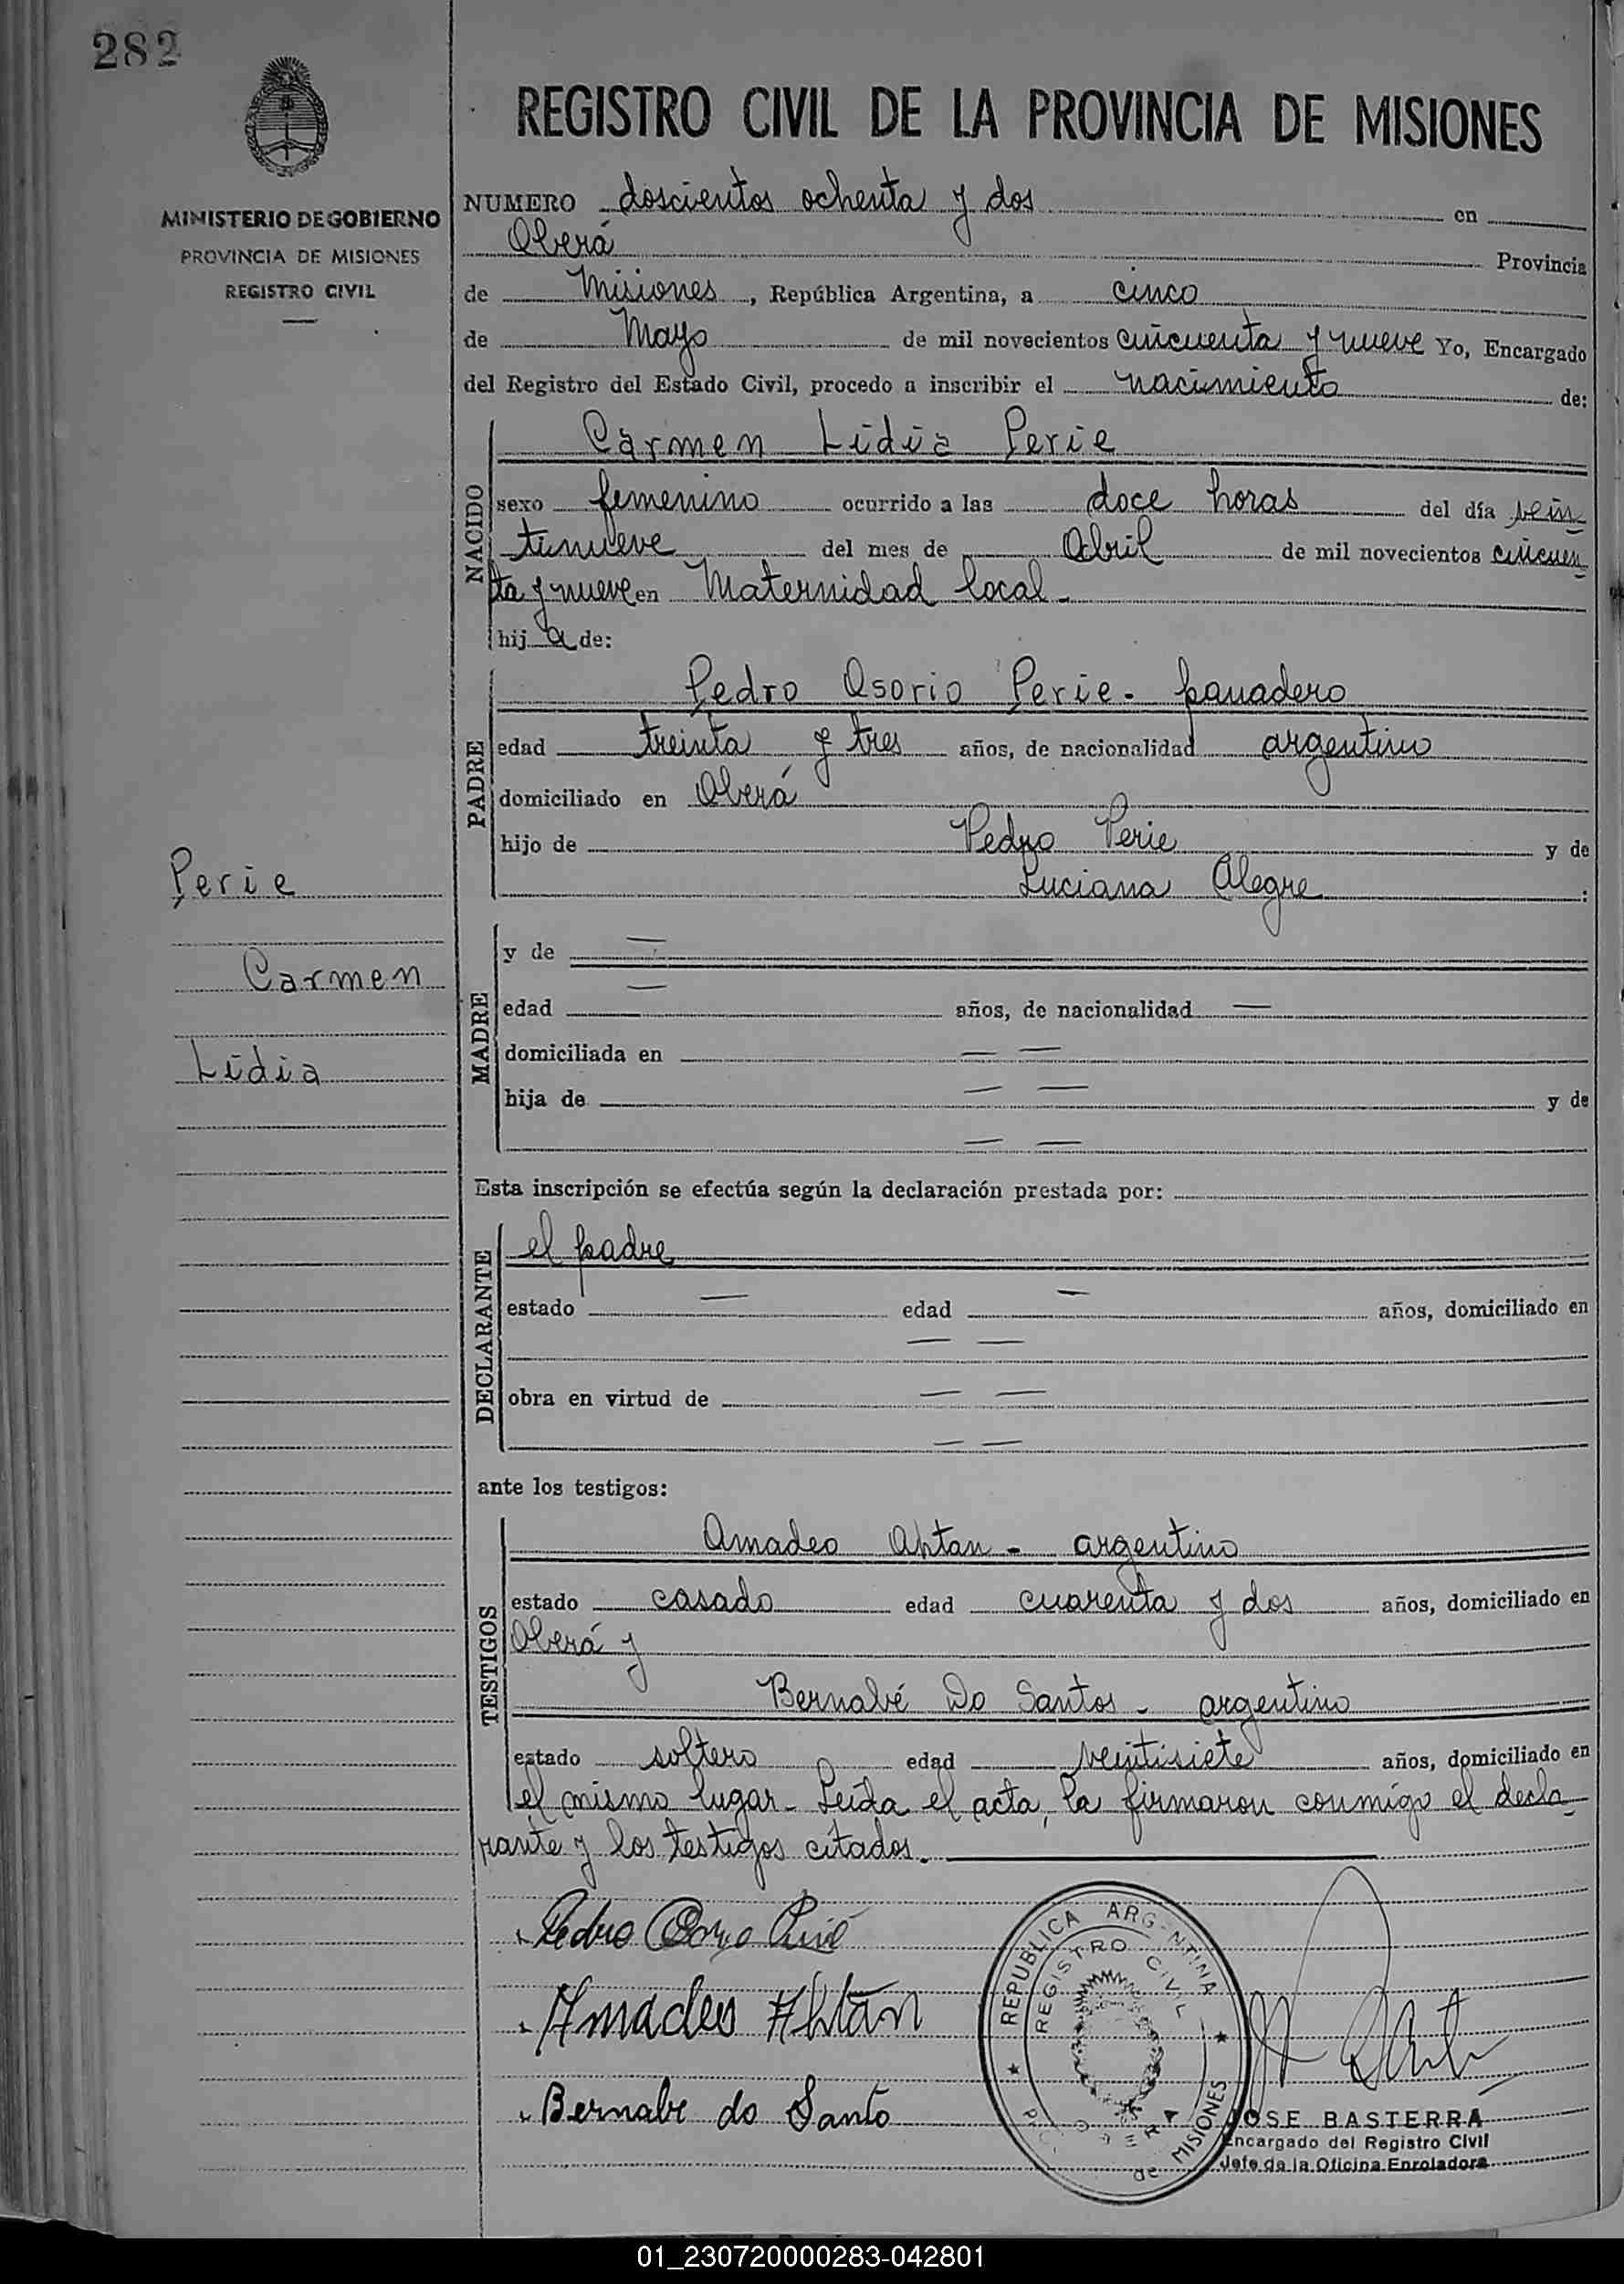 282
MINISTERIO DE GOBIERNO
PROVINCIA DE MISIONES
REGISTRO CIVIL
Perie
Carmen
Lidia
REGISTRO CIVIL DE LA PROVINCIA DE MISIONES
NUMERO doscientos ochenta y dos en
Oberá Provincia
de Misiones, República Argentina, a cinco
de Mayo de mil novecientos cincuenta y nueve Yo, Encargado
del Registro del Estado Civil, procedo a inscribir el nacimiento de:
NACIDO
Carmen Lidia Perie
sexo femenino ocurrido a las doce horas del día vein
tinueve del mes de Abril de mil novecientos cincuen
ta y nueve en Maternidad local.
hij a de:
PADRE
Pedro Osorio Perie - panadero
edad treinta y tres años, de nacionalidad argentino
domiciliado en Oberá
hijo de Pedro Perie y de
Luciana Alegre :
MADRE
y de —
edad — años, de nacionalidad —
domiciliada en — —
hija de — — y de
— —
Esta inscripción se efectúa según la declaración prestada por:
DECLARANTE
el padre
estado — edad — años, domiciliado en
— —
obra en virtud de — —
— —
ante los testigos:
TESTIGOS
Amadeo Ahtan - argentino
estado casado edad cuarenta y dos años, domiciliado en
Oberá y
Bernabé Do Santos - argentino
estado soltero edad veintisiete años, domiciliado en
el mismo lugar - Leída el acta, la firmaron conmigo el decla
rante y los testigos citados.
Pedro Perié
Amadeo Ahtan
Bernabe do Santo
REPUBLICA ARGENTINA
REGISTRO CIVIL
OBERA
de MISIONES
JOSE BASTERRA
Encargado del Registro Civil
Jefe de la Oficina Enroladora
01_230720000283-042801